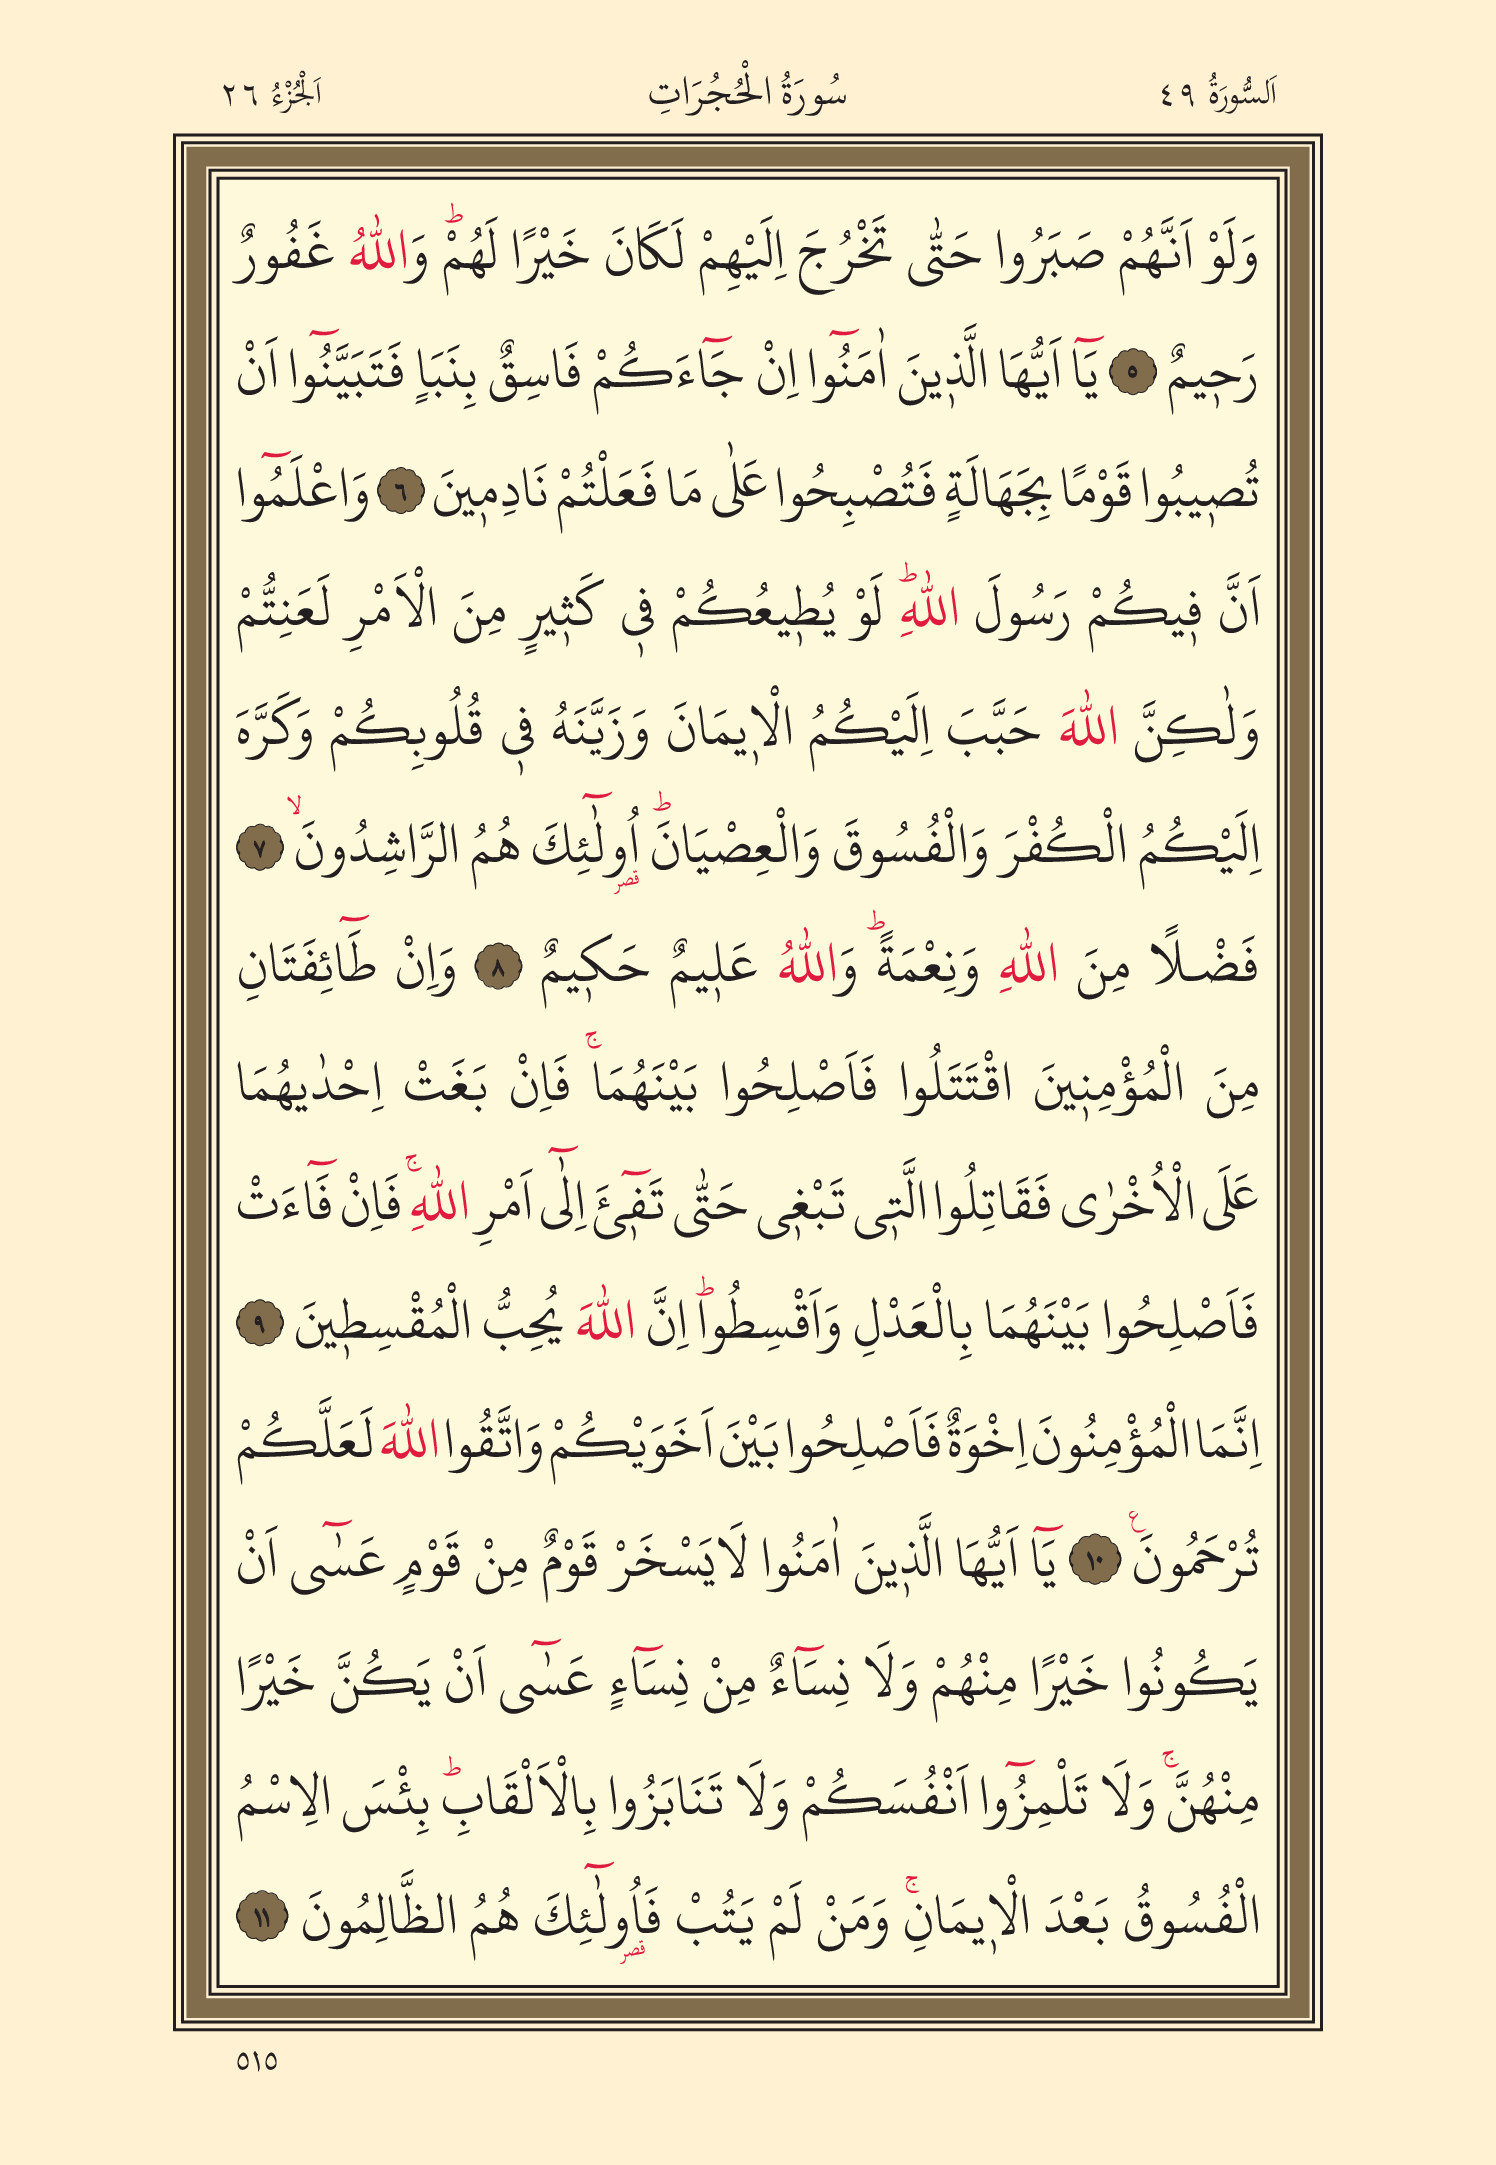 اَلسُّورَةُ ٤٩ سُورَةُ الْحُجُرَاتِ اَلْجُزْءُ ٢٦
وَلَوْ اَنَّهُمْ صَبَرُوا حَتّٰى تَخْرُجَ اِلَيْهِمْ لَكَانَ خَيْرًا لَهُمْۜ وَاللّٰهُ غَفُورٌ
رَح۪يمٌ ﴿٥﴾ يَٓا اَيُّهَا الَّذ۪ينَ اٰمَنُٓوا اِنْ جَٓاءَكُمْ فَاسِقٌ بِنَبَاٍ فَتَبَيَّنُٓوا اَنْ
تُص۪يبُوا قَوْمًا بِجَهَالَةٍ فَتُصْبِحُوا عَلٰى مَا فَعَلْتُمْ نَادِم۪ينَ ﴿٦﴾ وَاعْلَمُٓوا
اَنَّ ف۪يكُمْ رَسُولَ اللّٰهِۜ لَوْ يُط۪يعُكُمْ ف۪ي كَث۪يرٍ مِنَ الْاَمْرِ لَعَنِتُّمْ
وَلٰكِنَّ اللّٰهَ حَبَّبَ اِلَيْكُمُ الْا۪يمَانَ وَزَيَّنَهُ ف۪ي قُلُوبِكُمْ وَكَرَّهَ
اِلَيْكُمُ الْكُفْرَ وَالْفُسُوقَ وَالْعِصْيَانَۜ اُو۬لٰٓئِكَ هُمُ الرَّاشِدُونَۙ ﴿٧﴾
فَضْلًا مِنَ اللّٰهِ وَنِعْمَةًۜ وَاللّٰهُ عَل۪يمٌ حَك۪يمٌ ﴿٨﴾ وَاِنْ طَٓائِفَتَانِ
مِنَ الْمُؤْمِن۪ينَ اقْتَتَلُوا فَاَصْلِحُوا بَيْنَهُمَاۚ فَاِنْ بَغَتْ اِحْدٰيهُمَا
عَلَى الْاُخْرٰى فَقَاتِلُوا الَّت۪ي تَبْغ۪ي حَتّٰى تَف۪ٓيءَ اِلٰٓى اَمْرِ اللّٰهِۚ فَاِنْ فَٓاءَتْ
فَاَصْلِحُوا بَيْنَهُمَا بِالْعَدْلِ وَاَقْسِطُواۜ اِنَّ اللّٰهَ يُحِبُّ الْمُقْسِط۪ينَ ﴿٩﴾
اِنَّمَا الْمُؤْمِنُونَ اِخْوَةٌ فَاَصْلِحُوا بَيْنَ اَخَوَيْكُمْ وَاتَّقُوا اللّٰهَ لَعَلَّكُمْ
تُرْحَمُونَ۟ ﴿١٠﴾ يَٓا اَيُّهَا الَّذ۪ينَ اٰمَنُوا لَا يَسْخَرْ قَوْمٌ مِنْ قَوْمٍ عَسٰٓى اَنْ
يَكُونُوا خَيْرًا مِنْهُمْ وَلَا نِسَٓاءٌ مِنْ نِسَٓاءٍ عَسٰٓى اَنْ يَكُنَّ خَيْرًا
مِنْهُنَّۚ وَلَا تَلْمِزُٓوا اَنْفُسَكُمْ وَلَا تَنَابَزُوا بِالْاَلْقَابِۜ بِئْسَ الِاسْمُ
الْفُسُوقُ بَعْدَ الْا۪يمَانِۚ وَمَنْ لَمْ يَتُبْ فَاُو۬لٰٓئِكَ هُمُ الظَّالِمُونَ ﴿١١﴾
٥١٥